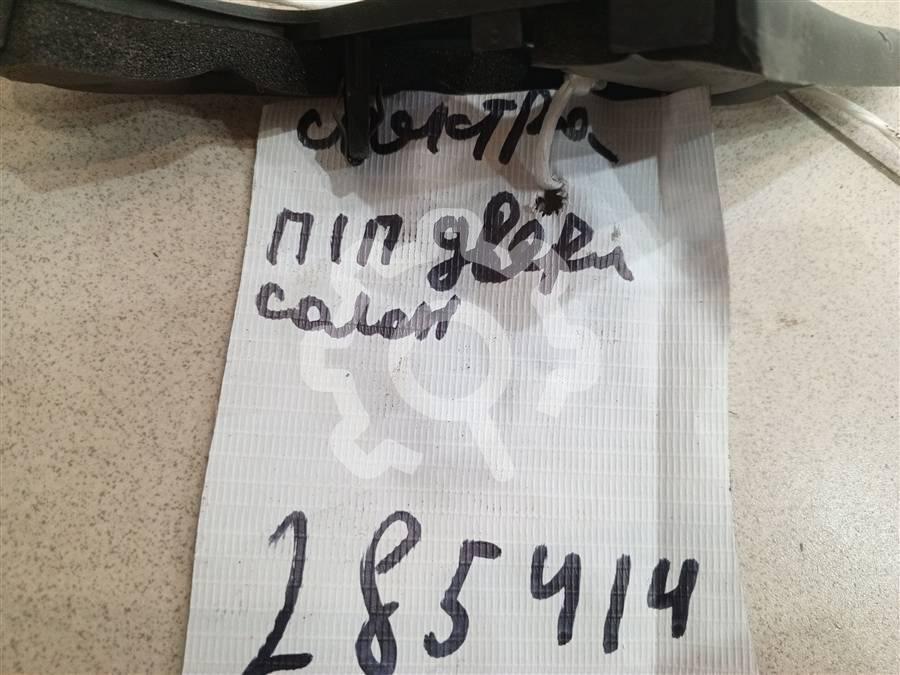 спектра
ПІП двери
салон
285414